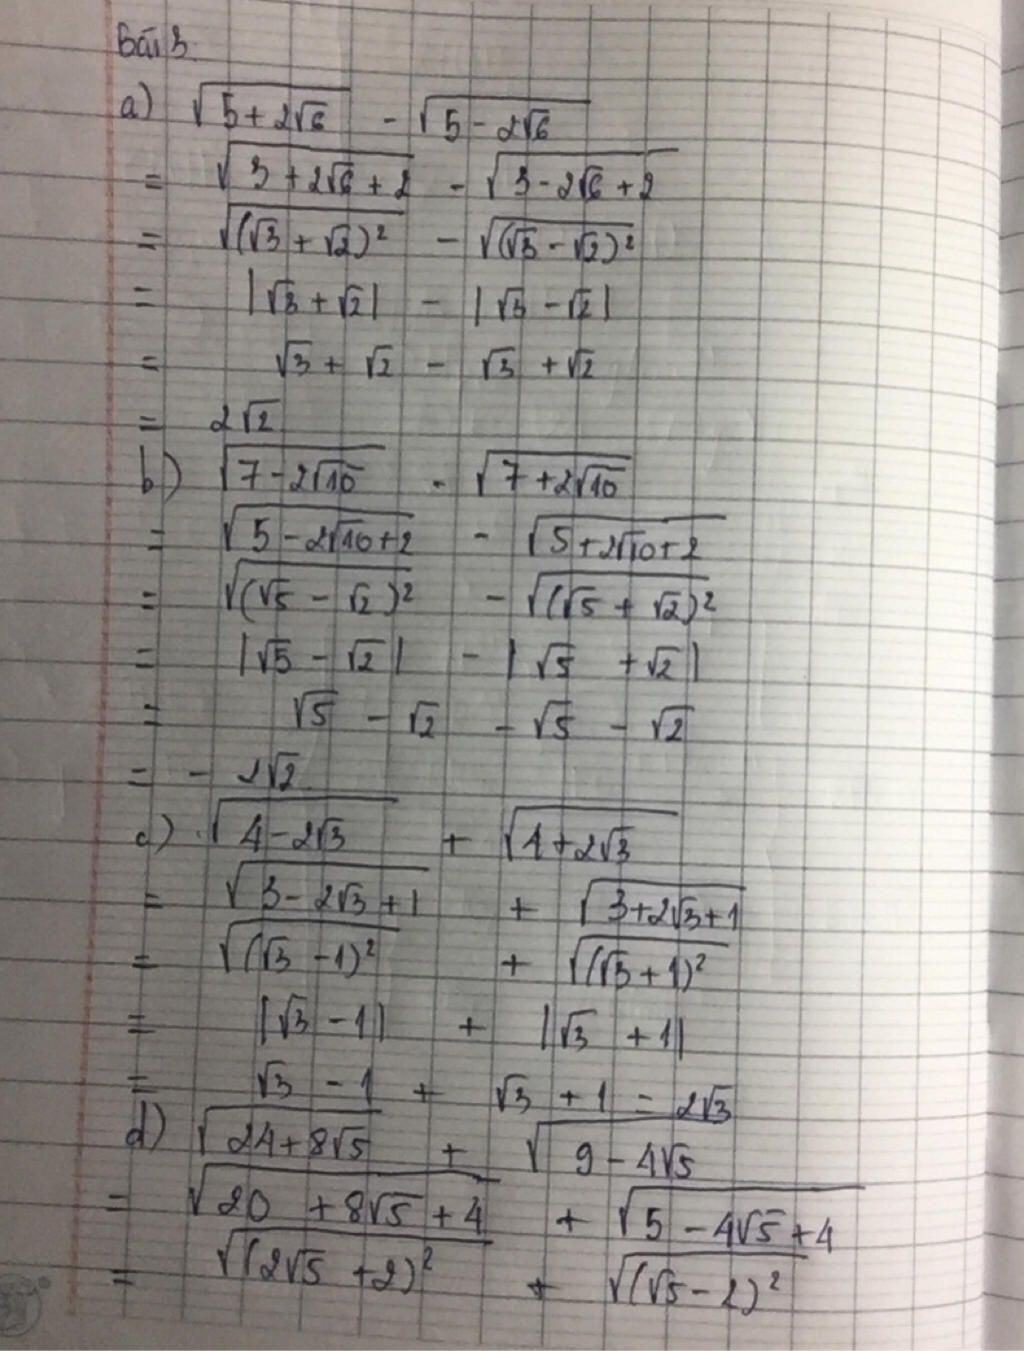 Bài 3.
a) √(5+2√6) - √(5-2√6)
= √(3+2√6+2) - √(3-2√6+2)
= √((√3+√2)²) - √((√3-√2)²)
= |√3+√2| - |√3-√2|
= √3+√2 - √3+√2
= 2√2
b) √(7-2√10) - √(7+2√10)
= √(5-2√10+2) - √(5+2√10+2)
= √((√5-√2)²) - √((√5+√2)²)
= |√5-√2| - |√5+√2|
= √5-√2 - √5-√2
= -2√2
c) √(4-2√3) + √(4+2√3)
= √(3-2√3+1) + √(3+2√3+1)
= √((√3-1)²) + √((√3+1)²)
= |√3-1| + |√3+1|
= √3-1 + √3+1 = 2√3
d) √(24+8√5) + √(9-4√5)
= √(20+8√5+4) + √(5-4√5+4)
= √((2√5+2)²) + √((√5-2)²)